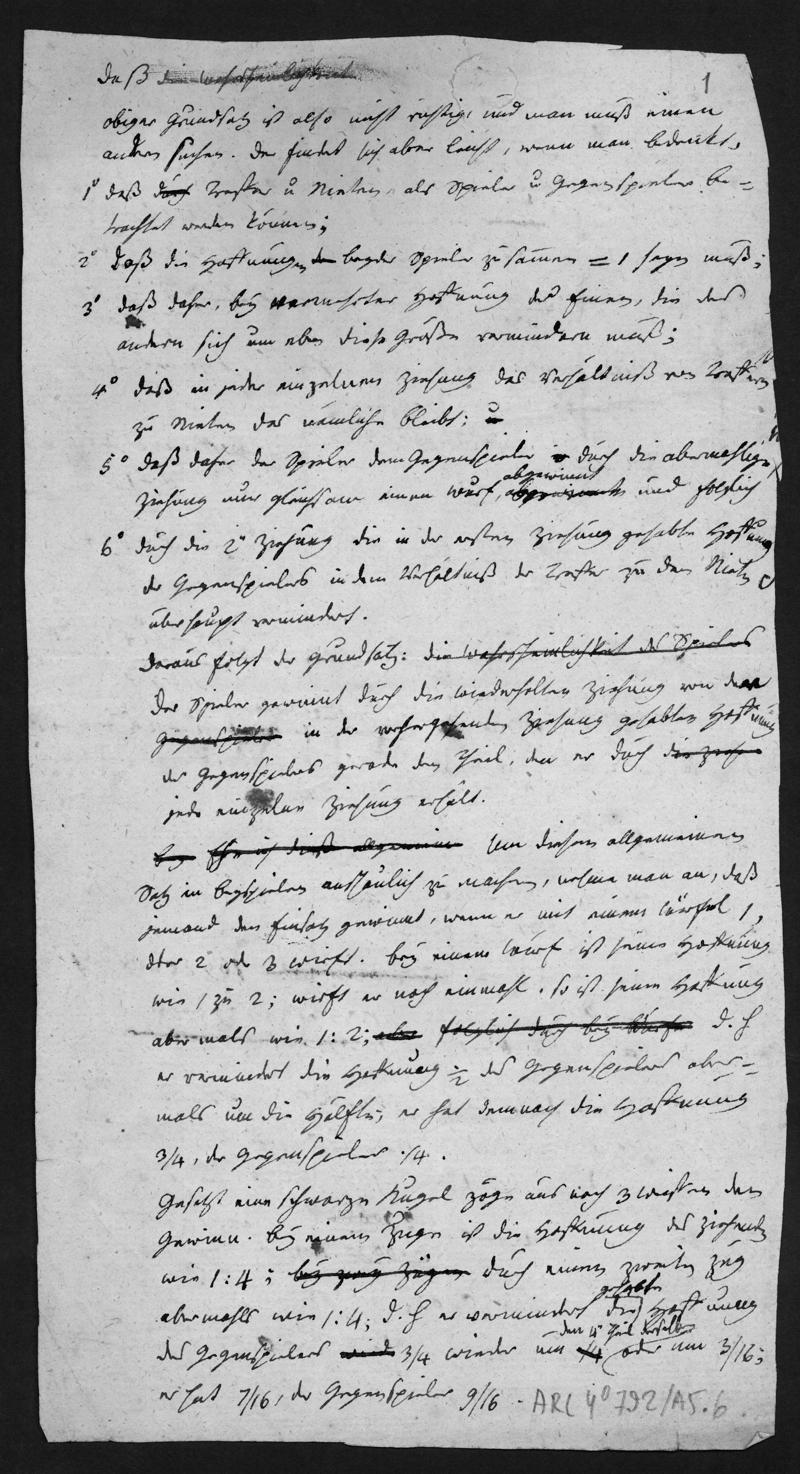 1
daß die Wahrscheinlichkeit
obiger Grundsatz ist also nicht richtig, und man muß einen
andern suchen. Der findet sich aber leicht, wenn man bedenkt,
1° daß Treffer u Nieten, als Spieler u Gegenspieler be=
trachtet werden können;
2° Daß die Hoffnungen beyder Spieler zusammen = 1 seyn muß;
3° daß daher, bey vermehrter Hoffnung des Einen, die des
andern sich um eben diese Größe vermindern muß;
4° daß in jeder einzelnen Ziehung das Verhältniß von Treffern
zu Nieten das nämliche bleibt; u
5° daß daher der Spieler dem Gegenspieler durch die abermahlige
abgewinnt
Ziehung nur gleichsam einen Wurf, und folglich
6° durch die 2te Ziehung die in der ersten Ziehung gehabte Hoffnung
des Gegenspielers in dem Verhältniß der Treffer zu den Nieten
überhaupt vermindert.
Daraus folgt der Grundsatz: die Wahrscheinlichkeit des Spielers
Der Spieler gewinnt durch die wiederholten Ziehung von der
Gegenspieler in der vorhergehenden Ziehung gehabten Hoffnung
des Gegenspielers gerade den Theil, den er durch die Zieh
jede einzelne Ziehung erhält.
bey Ehe ich dieß allgemein Um diesen allgemeinen
Satz in Beyspielen anschaulich zu machen, nehme man an, daß
jemand den Einsatz gewinnt, wenn er mit einem Würfel 1,
oder 2 oder 3 wirft. Bey einem Wurf ist seine Hoffnung
wie 1 zu 2; wirft er noch einmahl, so ist seine Hoffnung
abermals wie 1:2; aber folglich durch bey Würfe d. h
er vermindert die Hoffnung 1/2 des Gegenspielers aber=
mals um die Hälfte, er hat demnach die Hoffnung
3/4, der Gegenspieler 1/4.
Gesetzt eine schwarze Kugel zöge aus noch 3 weißen den
Gewinn. Bey einem Zuge ist die Hoffnung des Ziehenden
wie 1:4; bey zwey Zügen durch einen zweiten Zug
gehabte
abermahls wie 1:4; d. h er vermindert die Hoffnung
den 4 Theil derselben
des Gegenspielers 3/4 wieder um 1/4 oder um 3/16;
er hat 7/16, der Gegenspieler 9/16.
ARC 4° 792/A5.6